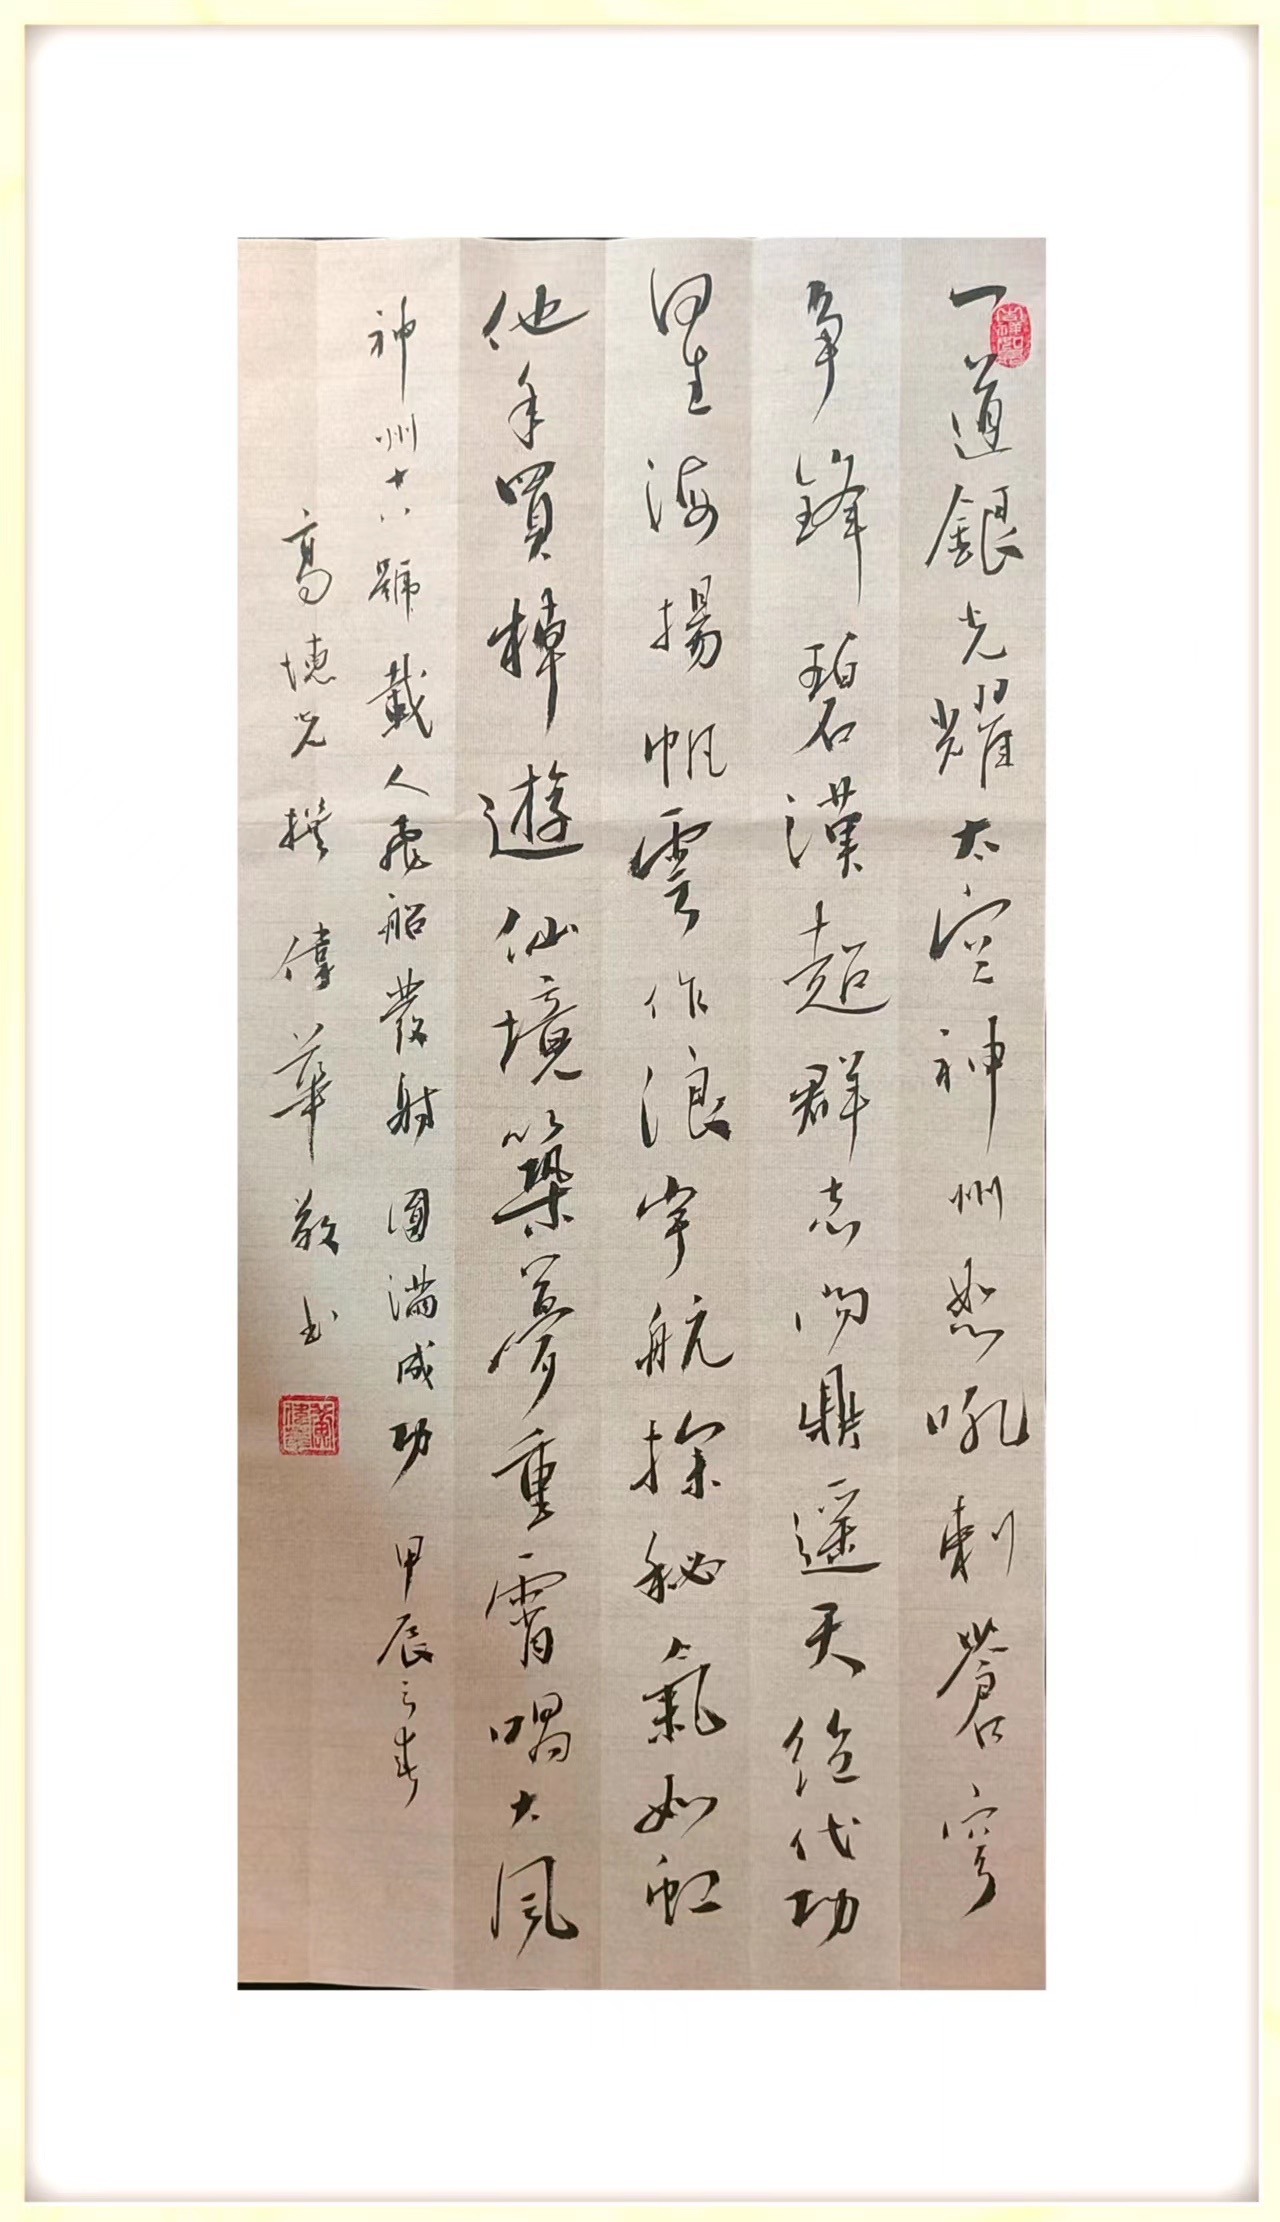 一道銀光耀太空神州怒吼刺蒼穹
爭鋒碧漢超群志問鼎遥天絶代功
星海揚帆雲作浪宇航探秘氣如虹
他年買棹遊仙境築夢重霄唱大風
神州十八號載人飛船發射圓滿成功 甲辰之春
高德光撰 偉華敬書